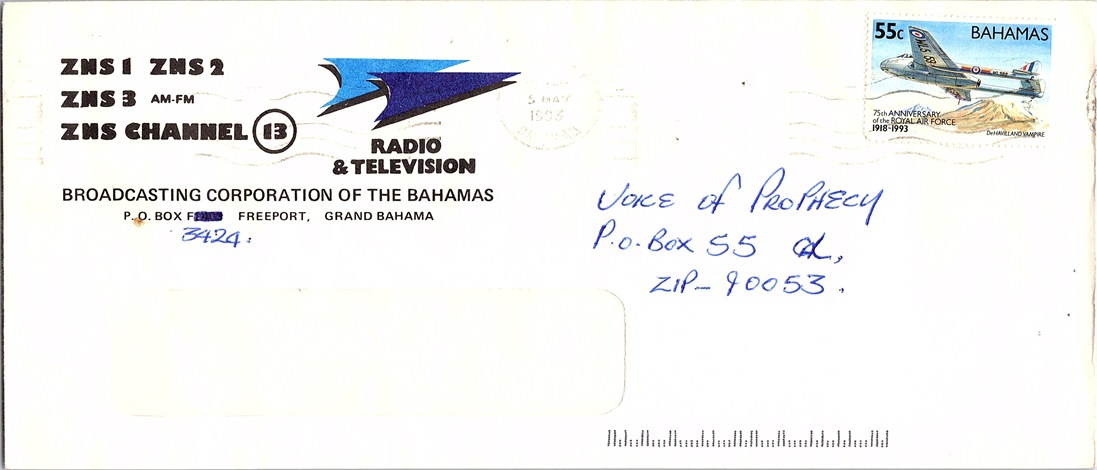 ZNS 1 ZNS 2
ZNS 3 AM-FM
ZNS CHANNEL 13
RADIO
& TELEVISION
BROADCASTING CORPORATION OF THE BAHAMAS
P.O. BOX F FREEPORT, GRAND BAHAMA
3424.
5 MAY
1993
55c BAHAMAS
75th ANNIVERSARY
of the ROYAL AIR FORCE
1918-1993
DeHAVILLAND VAMPIRE
VOICE of PROPHECY
P.O. BOX 55
ZIP- 90053.